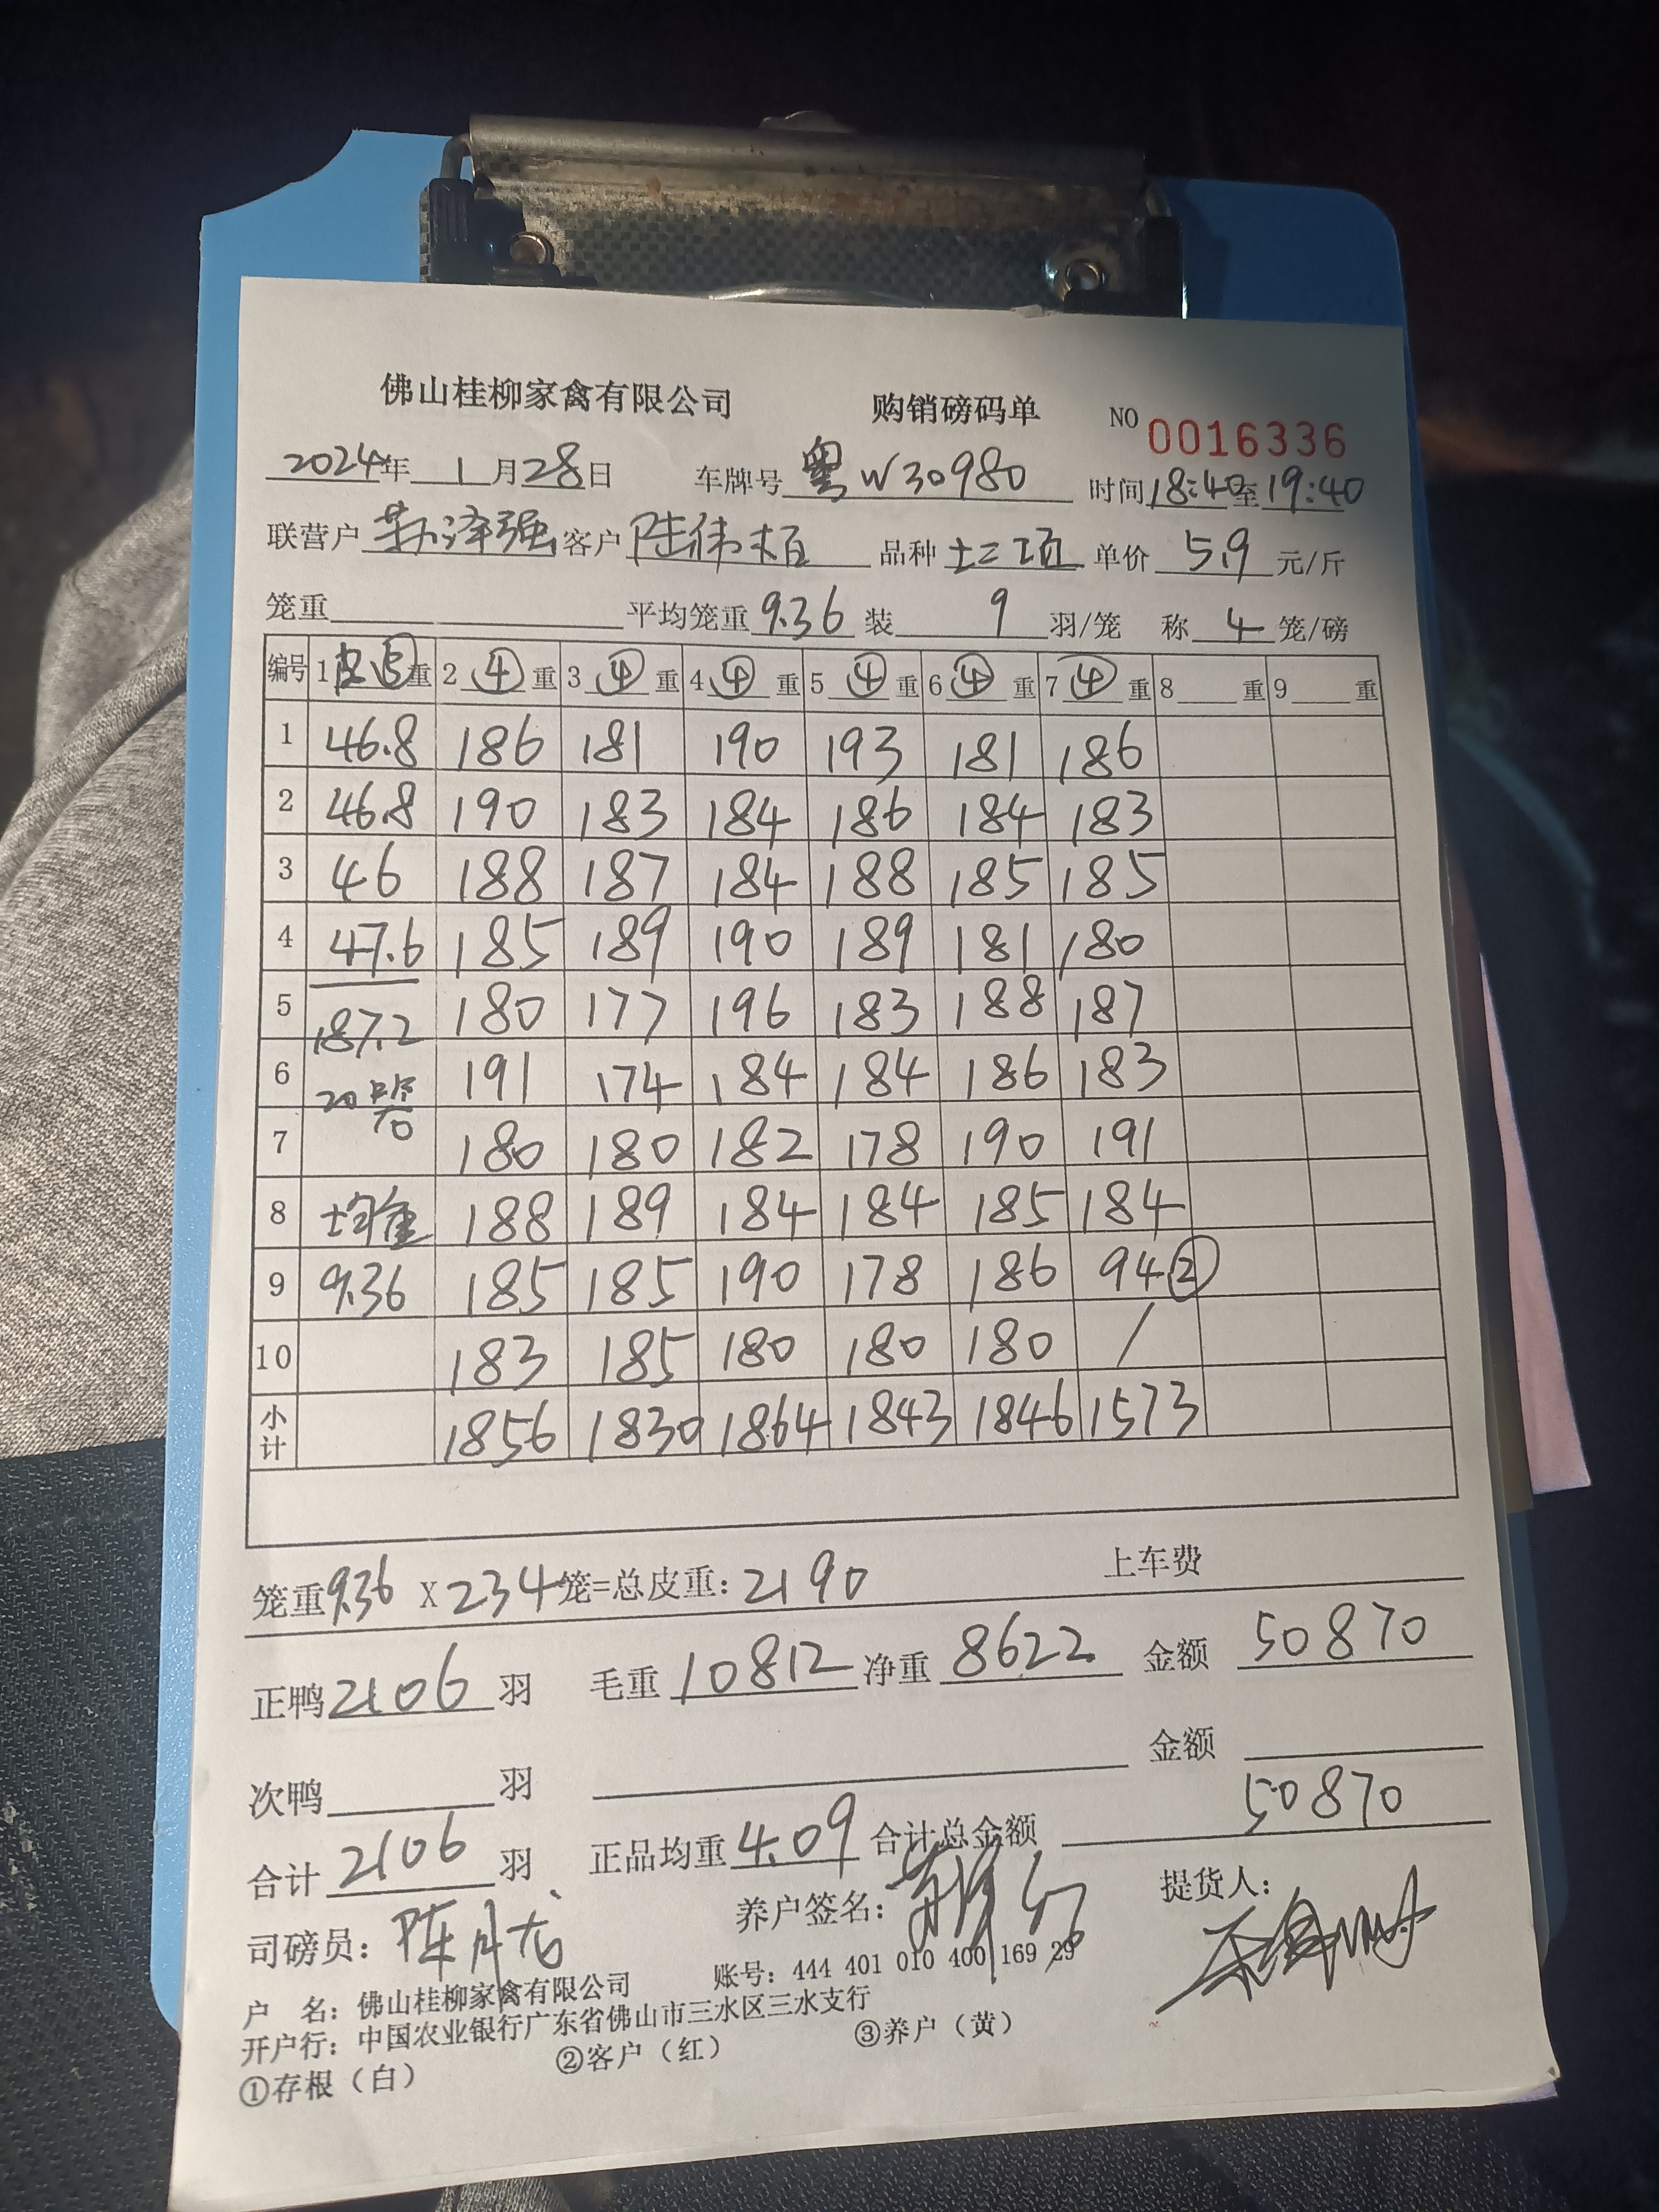 佛山桂柳家禽有限公司 购销磅码单 NO 0016336
2024年 1月28日 车牌号 粤W30980 时间18:40至19:40
联营户 泽强 客户 陆伟 品种 土二项 单价 5.9 元/斤
笼重 平均笼重 9.36 装 9 羽/笼 称 4 笼/磅
编号 1皮⑤重 2 ④ 重 3 ④ 重 4 ④ 重 5 ④ 重 6 ④ 重 7 ④ 重 8 重 9 重
1 46.8 186 181 190 193 181 186
2 46.8 190 183 184 186 184 183
3 46 188 187 184 188 185 185
4 47.6 185 189 190 189 181 180
5 187.2 180 177 196 183 188 187
6 20 191 174 184 184 186 183
7 180 180 182 178 190 191
8 均重 188 189 184 184 185 184
9 9.36 185 185 190 178 186 94②
10 183 185 180 180 180 /
小计 1856 1830 1864 1843 1846 1573
笼重9.36 X 234笼=总皮重：2190 上车费
正鸭2106 羽 毛重 10812 净重 8622 金额 50870
次鸭 羽 金额
合计 2106 羽 正品均重 4.09 合计总金额 50870
司磅员： 陈月 养户签名： 提货人：
户 名：佛山桂柳家禽有限公司 账号：444 401 010 400 169 29
开户行：中国农业银行广东省佛山市三水区三水支行
①存根（白） ②客户（红） ③养户（黄）